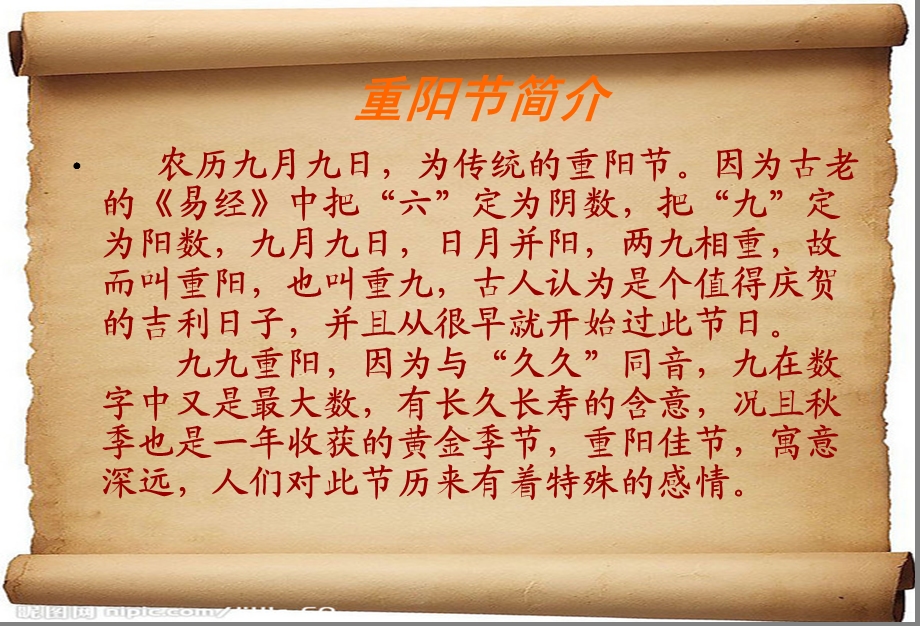 重阳节简介
• 农历九月九日，为传统的重阳节。因为古老
的《易经》中把“六”定为阴数，把“九”定
为阳数，九月九日，日月并阳，两九相重，故
而叫重阳，也叫重九，古人认为是个值得庆贺
的吉利日子，并且从很早就开始过此节日。
九九重阳，因为与“久久”同音，九在数
字中又是最大数，有长久长寿的含意，况且秋
季也是一年收获的黄金季节，重阳佳节，寓意
深远，人们对此节历来有着特殊的感情。
昵图网 nipic.com/